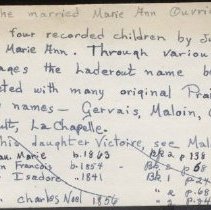 he married Marie Ann Ouvri
four recorded children by J
Marie Ann. Through variou
ages the Laderout name b
ted with many original Prai
names – Gervais, Maloin,
ult, La Chapelle.
his daughter Victoire, see Mal
au. Marie b. 1863 p 138
n Francois b. 1854 Bk 2 p 68
Isadore " 1841 Bk 1 p-24
" 2 p. 68
Charles Noel 1856 " 2 p-24